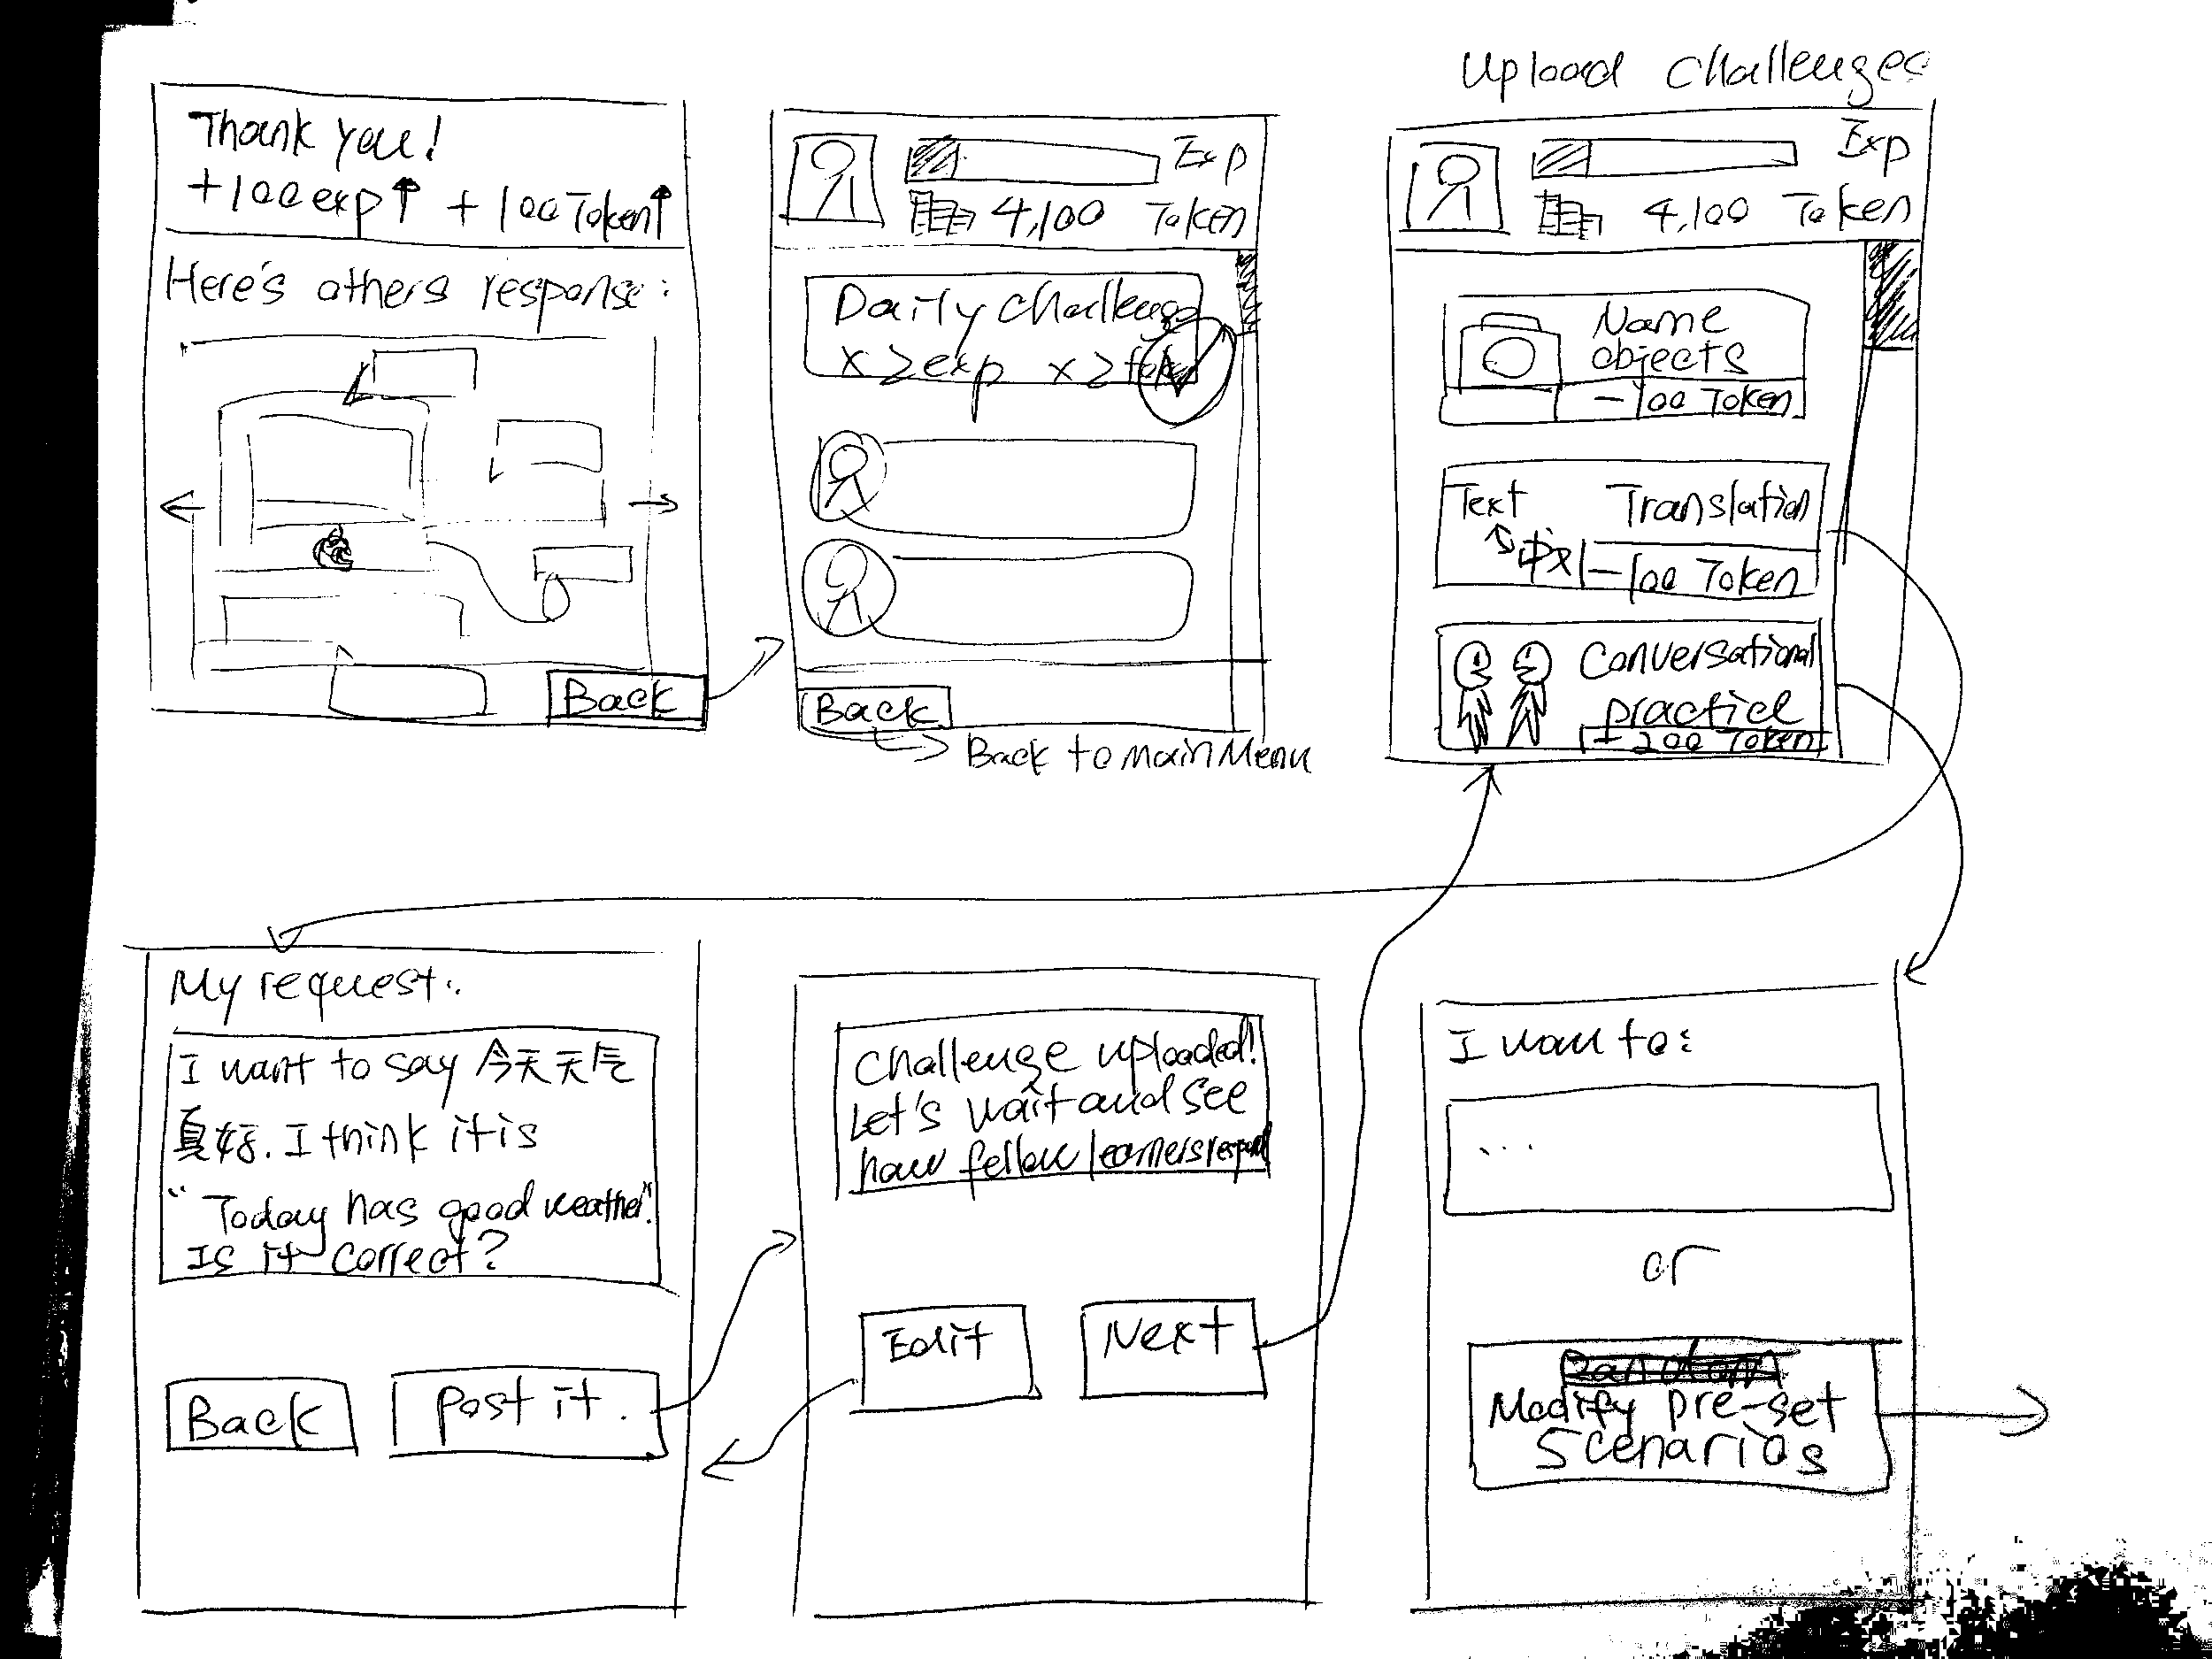 Upload Challenges
Thank you!
+100 exp↑ +100 Token↑
Here's others response:
Back
Exp
4,100 Token
Daily Challenge
x2 exp x2 token
Back
Back to main Menu
Exp
4,100 Token
Name
objects
-100 Token
Text Translation
中文 -100 Token
Conversational
practice
-200 Token
My request:
I want to say 今天天气
真好. I think it is
"Today has good weather".
Is it correct?
Back
Post it.
Challenge uploaded!
Let's wait and see
how fellow learners respond
Edit
Next
I want to:
...
or
Modify pre-set
Scenarios